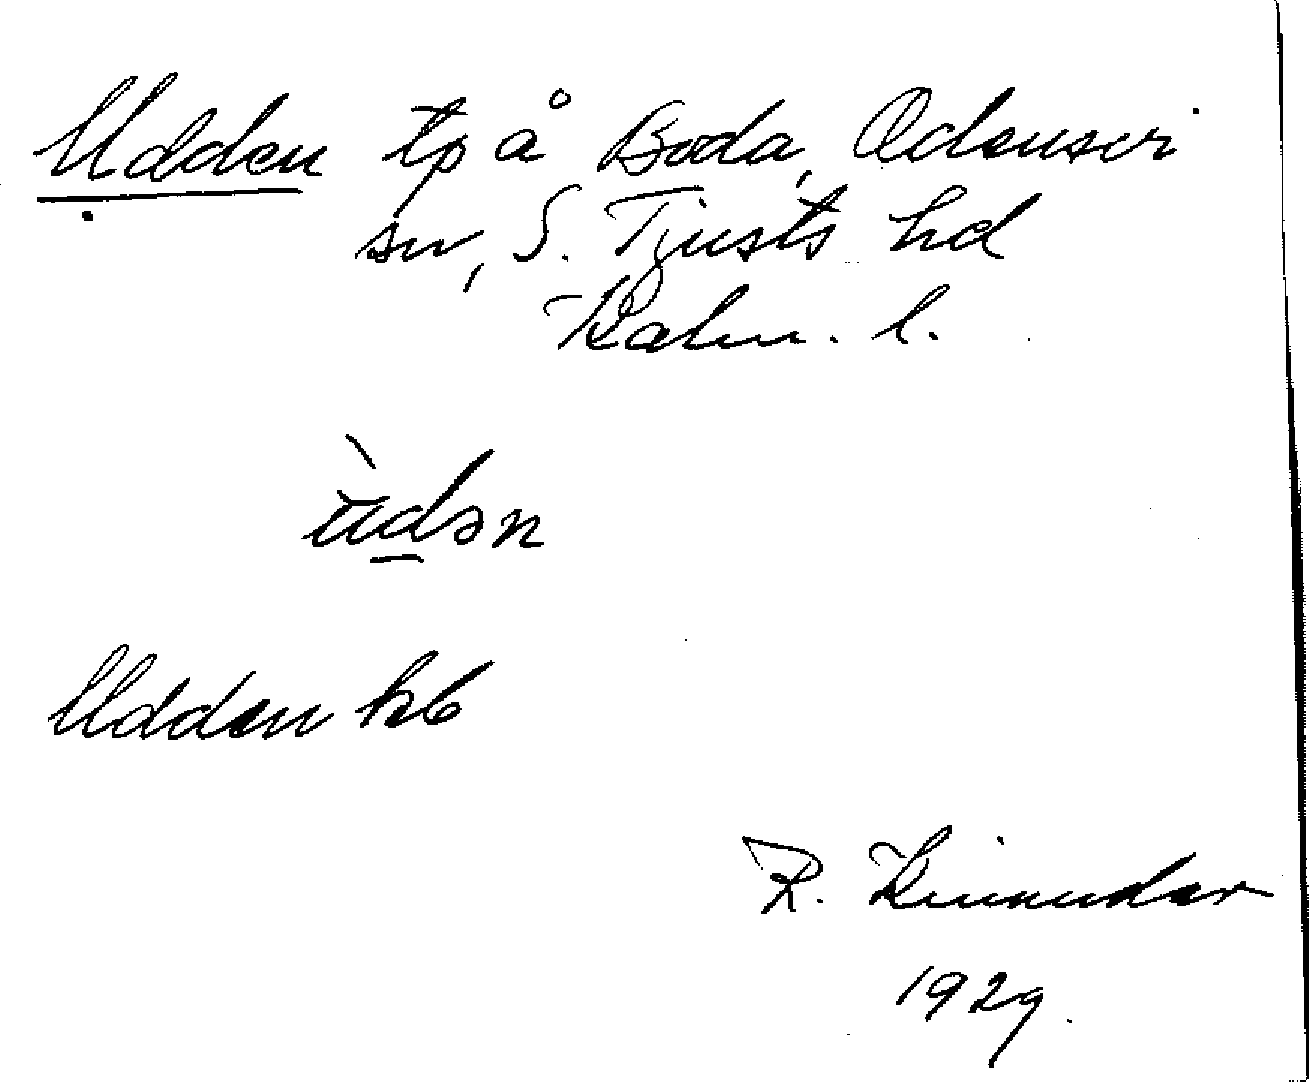 Udden tp å Boda, Odensvi
sn, S. Tjusts hd
Kalm. l.
ùdən
Udden kb
R. Kinander
1929.